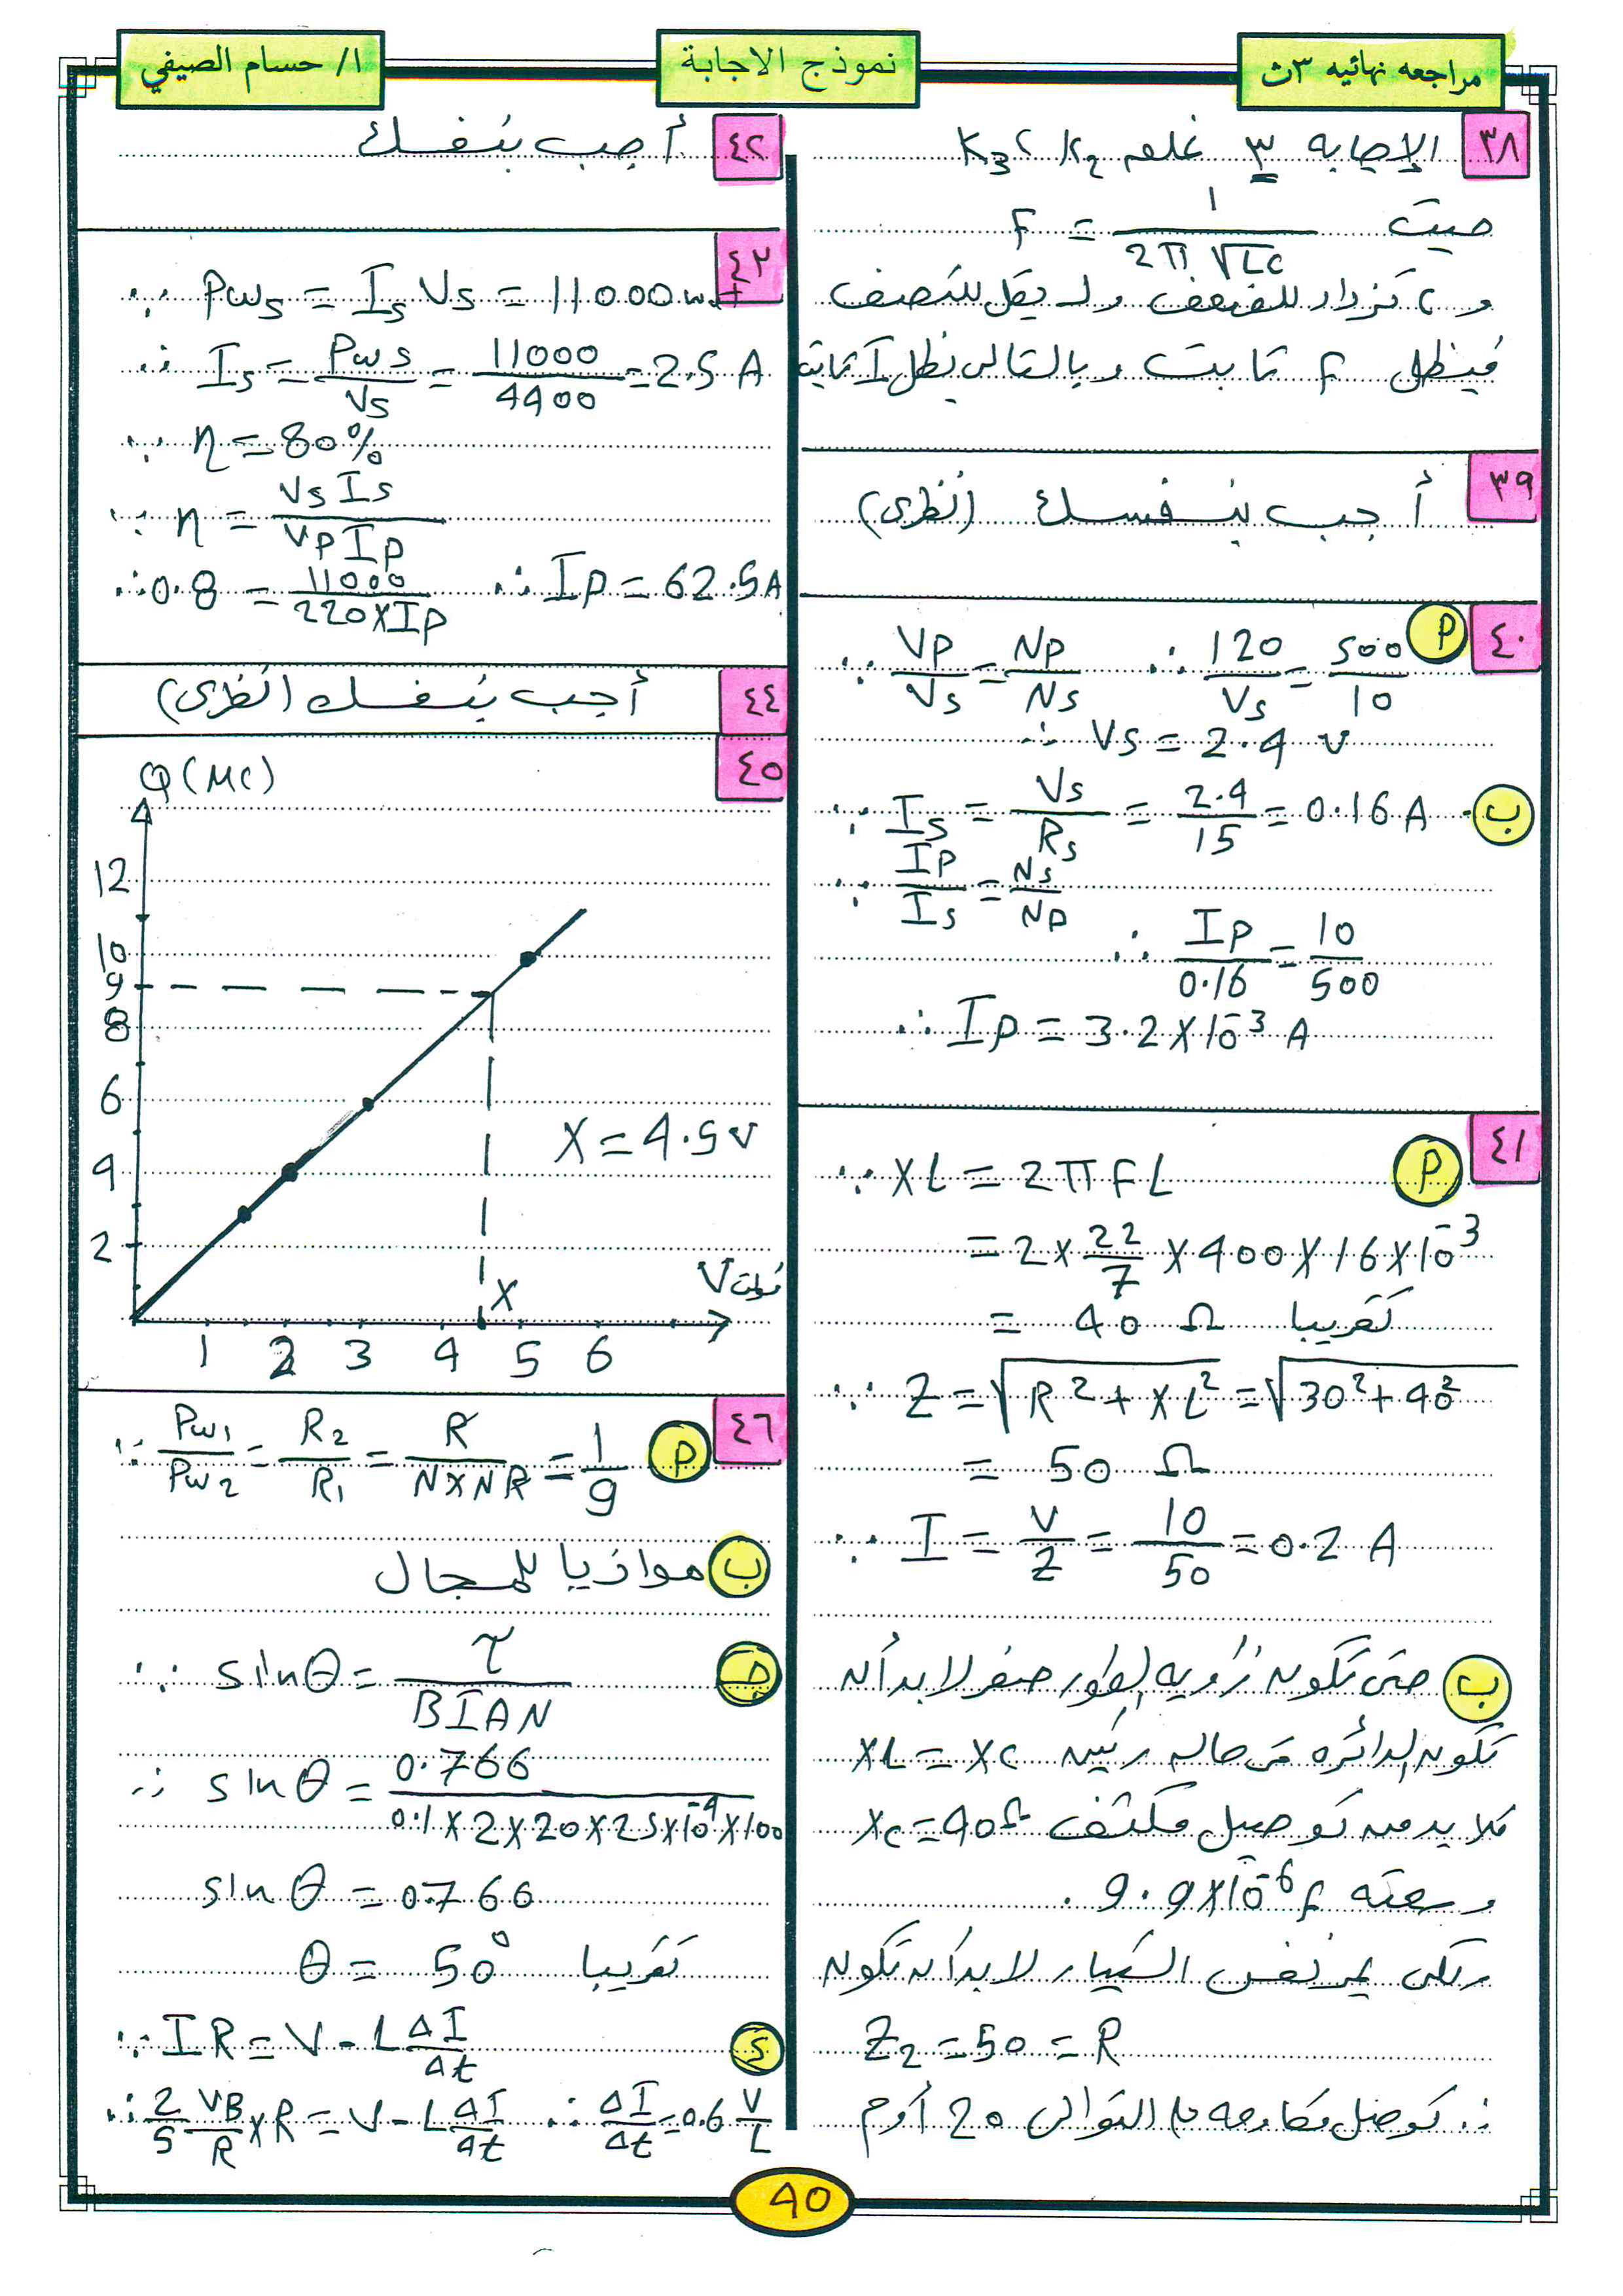 مراجعه نهائيه ٣ث
نموذج الاجابة
ا/ حسام الصيفي
٣٨ الإجابه ٣ غلق K3 ، K2
حيث F = 1 / 2π √LC
و C تزداد للضعف و L يقل للنصف
فيظل F ثابت وبالتالي يظل I ثابت
٣٩ أجب بنفسك (نظرى)
٤٠ P ∵ Vp/Vs = Np/Ns ∴ 120/Vs = 500/10
∴ Vs = 2.4 v
ب ∵ Is = Vs/Rs = 2.4/15 = 0.16 A
∵ Ip/Is = Ns/Np
∴ Ip/0.16 = 10/500
∴ Ip = 3.2 X 10⁻³ A
٤١ P ∵ XL = 2π F L
= 2 X 22/7 X 400 X 16 X 10⁻³
= 40 Ω تقريبا
∵ Z = √R² + XL² = √30² + 40²
= 50 Ω
∵ I = V/Z = 10/50 = 0.2 A
ب حتى تكون زاويه الطور صفر لابد أن
تكون الدائره فى حاله رنين XL = XC
فلابد من توصيل مكثف XC = 40Ω
وسعته 9.9 X 10⁻⁶ F
ولكى يمر نفس التيار لابد أن تكون
Z2 = 50 = R
∴ توصل مقاومه على التوالى 20 أوم
٤٢ أجب بنفسك
٤٣ ∵ Pws = Is Vs = 11000 watt
∴ Is = Pws/Vs = 11000/4400 = 2.5 A
∵ η = 80%
∵ η = Vs Is / Vp Ip
∴ 0.8 = 11000 / 220 X Ip ∴ Ip = 62.5 A
٤٤ أجب بنفسك (نظرى)
٤٥
Q (MC)
12
10
9
8
6
4
2
X = 4.5 v
X
V فولت
1 2 3 4 5 6
٤٦ P ∵ Pw1/Pw2 = R2/R1 = R / N X N R = 1/9
ب موازيا للمجال
جـ ∵ sin θ = τ / BIAN
∴ sin θ = 0.766 / 0.1 X 2 X 20 X 25 X 10⁻⁴ X 100
sin θ = 0.766
θ = 50° تقريبا
د ∵ I R = V - L ΔI/Δt
∴ 2/5 VB/R X R = V - L ΔI/Δt ∴ ΔI/Δt = 0.6 V/L
40